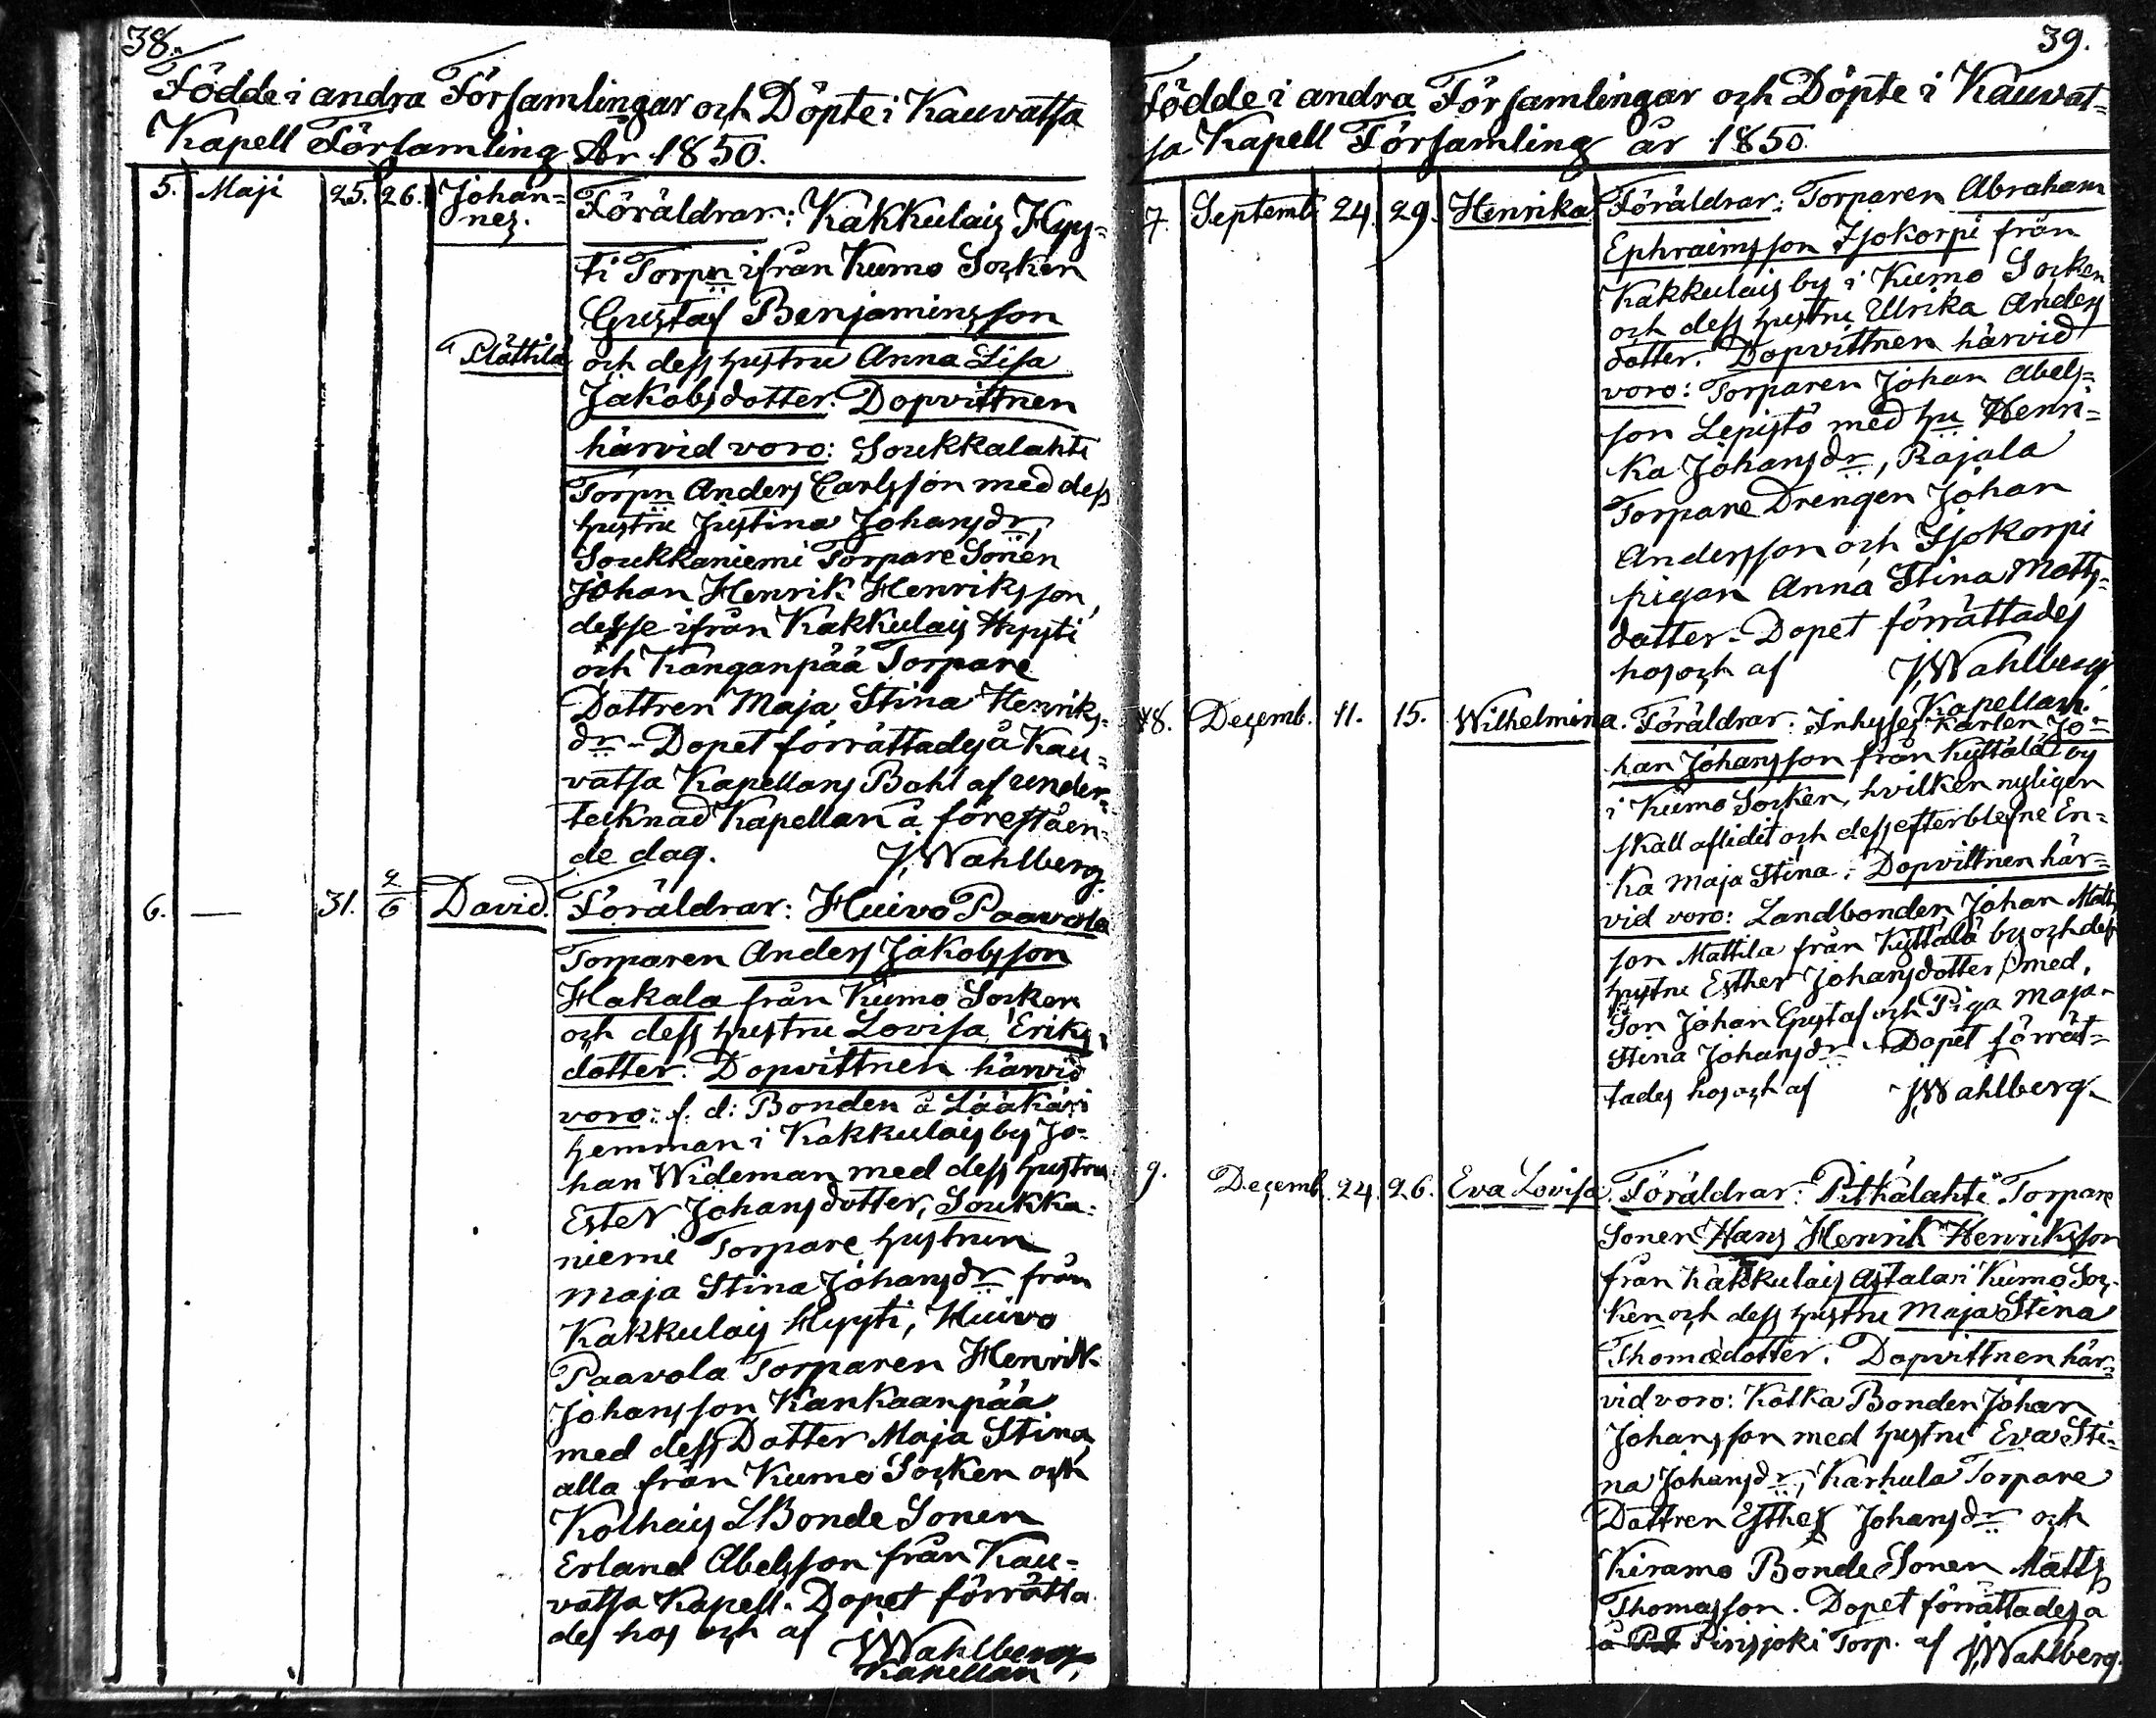 38.
Födde i andra Församlingar och Döpte i Kauvatsa
Kapell Församling År 1850.
5. Maji 25. 26. Johan=
nes.
Föräldrar: Kakkulais Hyy=
ti Torpn ifrån Kumo Socken
Gustaf Benjaminsson
å Plättilä
och dess hustru Anna Lisa
Jakobsdotter. Dopvittnen
härvid voro: Soukkalahti
Torpn Anders Carlsson med dess
hustru Justina Johansdr,
Soukkaniemi Torpare Sonen
Johan Henrik Henriksson,
desse ifrån Kakkulais Hyyti
och Kanganpää Torpare
Dottren Maja Stina Henriks=
dr - Dopet förrättades å Kau=
vatsa Kapellans Bohl af under=
tecknad Kapellan å föreståen=
de dag. J. Wahlberg.
6. — 31. 2/6 David. Föräldrar: Huivo Paavola
Torparen Anders Jakobsson
Hakala från Kumo Socken
och dess hustru Lovisa Eriks=
dotter. Dopvittnen härvid
voro: f. d: Bonden å Lääkäri
hemman i Kakkulais by Jo=
han Wideman med dess hustru
Ester Johansdotter, Soukka=
niemi Torpare hustrun
Maja Stina Johansdr från
Kakkulais Hyyti, Huivo
Paavola Torparen Henrik
Johansson Kankaanpää
med dess Dotter Maja Stina,
alla från Kumo Socken och
Kolhais LBonde Sonen
Erland Abelsson från Kau=
vatsa Kapell. Dopet förrätta
des hos och af J. Wahlberg,
Kapellan
39.
Födde i andra Församlingar och Döpte i Kauvat=
sa Kapell Församling år 1850.
7. Septemb. 24. 29. Henrika Föräldrar: Torparen Abraham
Ephraimsson Isokorpi från
Kakkulais by i Kumo Socken
och dess hustru Ullrika Anders
dotter. Dopvittnen härvid
voro: Torparen Johan Abels=
son Lepistö med hu Henri=
ka Johansdr, Rajala
Torpare Drengen Johan
Andersson och Isokorpi
pigan Anna Stina Matts=
dotter. Dopet förrättades
hos och af J. Wahlberg
Kapellan.
8. Decemb. 11. 15. Wilhelmina. Föräldrar: Inhyses Karlen Jo=
han Johansson från Kyttälä by
i Kumo Socken, hvilken nyligen
skall aflidit och dess efterblefne En=
ka Maja Stina. Dopvittnen här=
vid voro: Landbonden Johan Matts
son Mattila från Kyttälä by och dess
hustru Esther Johansdotter med,
Son Johan Gustaf och Piga Maja
Stina Johansdr. Dopet förrät=
tades hos och af J. Wahlberg.
9. Decemb. 24. 26. Eva Lovisa. Föräldrar: Pitkälahti Torpare
Sonen Hans Henrik Henriksson
från Kakkulais Astala i Kumo Soc=
ken och dess hustru Maja Stina
Thomædotter. Dopvittnen här=
vid voro: Kotka Bonden Johan
Johansson med hustru Eva Sti=
na Johansdr, Karhula Torpare
Dottren Esther Johansdr och
Kiramo Bonde Sonen Matts
Thomasson. Dopet förrättades å
å Pirisjoki Torp. af J. Wahlberg.